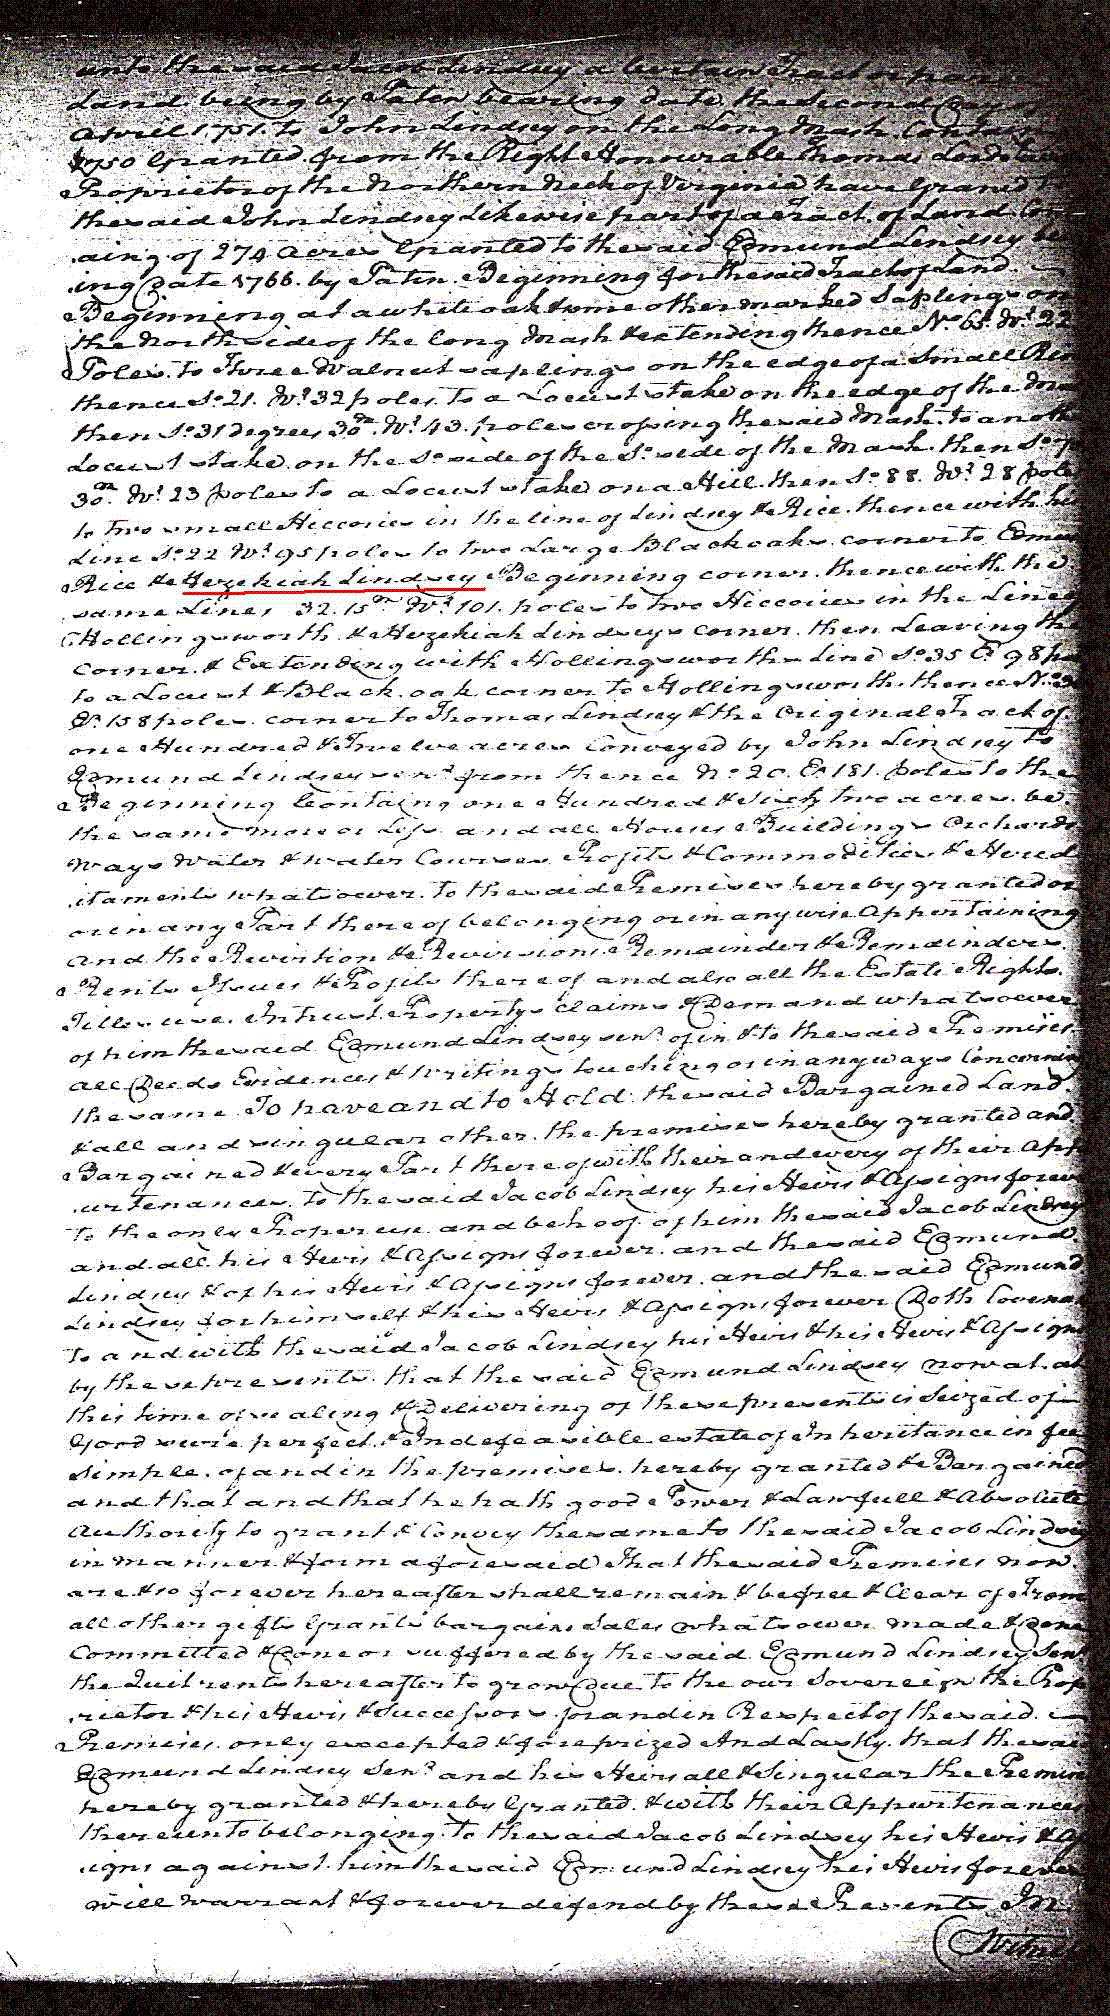 unto the said Jacob Lindsey a Certain Tract or par
Land being by Paten bearing date the Second Day of
April 1751. to John Lindsey on the Long Mash Contain
1750 Granted from the Right Honourable Thomas Lord
Proprietor of the Northern Neck of Virginia have Grant
the said John Lindsey Likewise part of a Tract of Land Con
aing of 274 acres Granted to the said Edmund Lindsey be
ing Date 1766. by Paten Beginning for the said Tract of Land
Beginning at a white oak & some other marked Saplings on
the North side of the long Mash & extending thence No. 65. Wt. 22
Poles to Three Walnut saplings on the edge of a Small
thence So. 21. Wt. 32 poles to a Locust stake on the edge of the
then So. 31 degrees 30m. Wt. 43. poles crossing the said Mash to anoth
Locust stake on the So. side of the So. side of the Mash. then So.
30m. Wt. 23 poles to a Locust stake on a Hill then So. 88. Wt. 28 poles
to two small Hiccories in the line of Lindsey & Rice. thence with his
Line So. 22 Wt. 95 poles to two Large Black oaks corner to Edmun
Rice & Hezekiah Lindsey Beginning corner. thence with the
same Lines 32. 15m Wt. 101. poles to two Hiccories in the Line of
Hollingsworth & Hezekiah Lindseys corner. then Leaving the
corner. & Extending with Hollingsworths Line So. 35 Et. 98 po
to a Locust & Black oak corner to Hollingsworth. thence No.
Et. 158 poles corner to Thomas Lindsey & the Original Tract of
one Hundred & Twelve acres Conveyed by John Lindsey to
Edmund Lindsey senr. from thence No. 20. Et. 181. poles to the
Beginning Containg one Hundred & Sixty two acres. be
the same more or Less and all Houses Buildings Orchards
Ways Water & water Courses Profits & Commodities & Hered
itaments whatsoever. to the said Premises hereby granted or
or in any Part thereof belonging or in any wise Appertaining
and the Revirtion & Revirsions Remainder & Remainders
Rents Issues & Profits thereof and also all the Estate Right
Title use. Intrust Property claims & Demand whatsoever
of him the said Edmund Lindsey senr. of in & to the said Premises
all Deeds Evidences & Writings touching or in any ways Concerning
the same To have and to Hold. the said Bargained Land
& all and singular other. the premises hereby granted and
Bargained & every Part thereof with their and every of their App
urtenances. to the said Jacob Lindsey his Heirs & Assigns forever
to the only Proper use. and behoof of him the said Jacob Lindsey
and all his Heirs & Assigns forever. and the said Edmund
Lindsey & of his Heirs & Assigns forever. and the said Edmund
Lindsey for himself & his Heirs & Assigns forever Doth Covena
to and with the said Jacob Lindsey his Heirs & his Heirs & Assigns
by these presents. that the said Edmund Lindsey now at. at
this time of sealing & Delivering of these presents is Seized of
Good sure perfect. & Indefeasible estate of Inheritance in fee
Simple. of and in the premises. hereby granted & Bargained
and that and that he hath good Power & Lawfull & Absolute
Authority to grant & Convey the same to the said Jacob Lindsey
in manner & form aforesaid That the said Premises now.
are & so forever hereafter shall remain & be free & Clear of From
all other gifts Grants bargains Sales whatsoever made & done
Committed & Done or suffered by the said Edmund Lindsey Senr
the Quitrents hereafter to grow due to the our Sovereign the Prop
rietor & his Heirs & Successors for and in Respect of the said.
Premises. only excepted & foreprized And Lastly. that the said
Edmund Lindsey Senr. and his Heirs all & Singular the Premises
hereby granted & hereby Granted. & with their Appurtenances
thereunto belonging. To the said Jacob Lindsey his Heirs & As
signs against. him the said Edmund Lindsey his Heirs forever
will warrant & forever defend by these Presents In
Witness